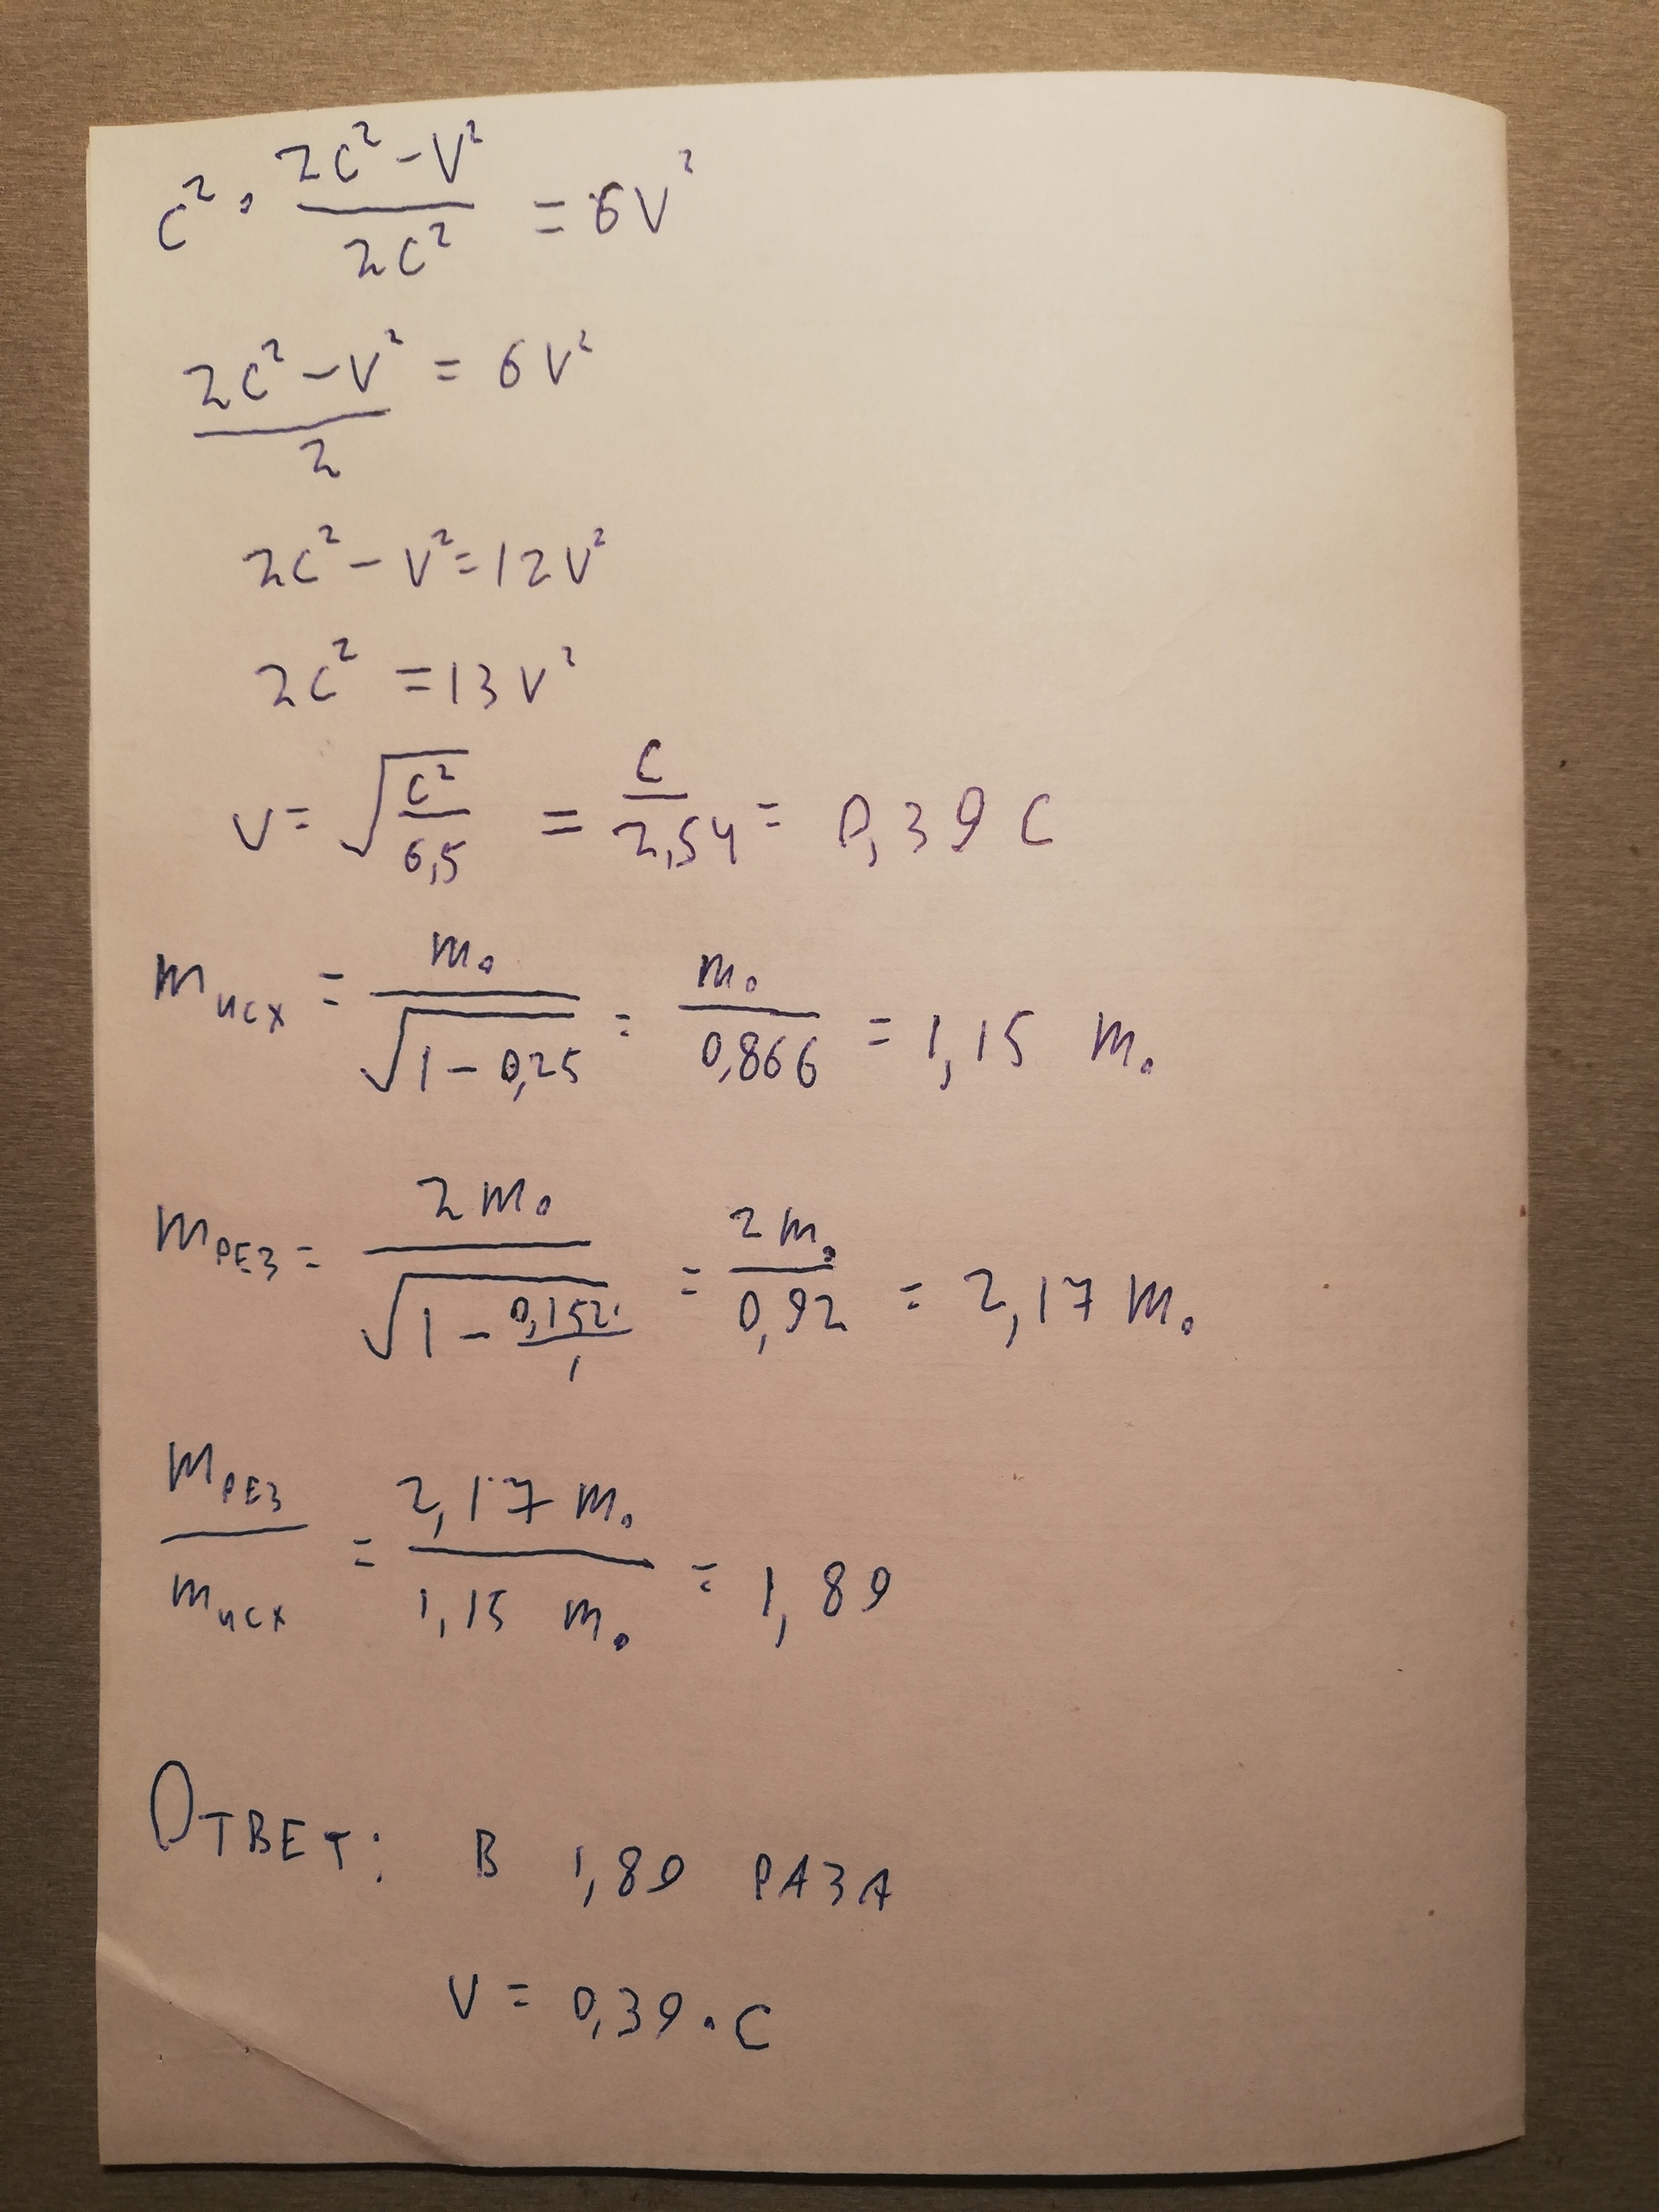 c² · (2c² − v²)/(2c²) = 6v²
(2c² − v²)/2 = 6v²
2c² − v² = 12v²
2c² = 13v²
v = √(c²/6,5) = c/2,54 = 0,39 c
m исх = m₀/√(1 − 0,25) = m₀/0,866 = 1,15 m₀
m РЕЗ = 2m₀/√(1 − 0,152/1) = 2m₀/0,92 = 2,17 m₀
m РЕЗ/m исх = 2,17 m₀/1,15 m₀ = 1,89
ОТВЕТ: В 1,89 РАЗА
v = 0,39 · c